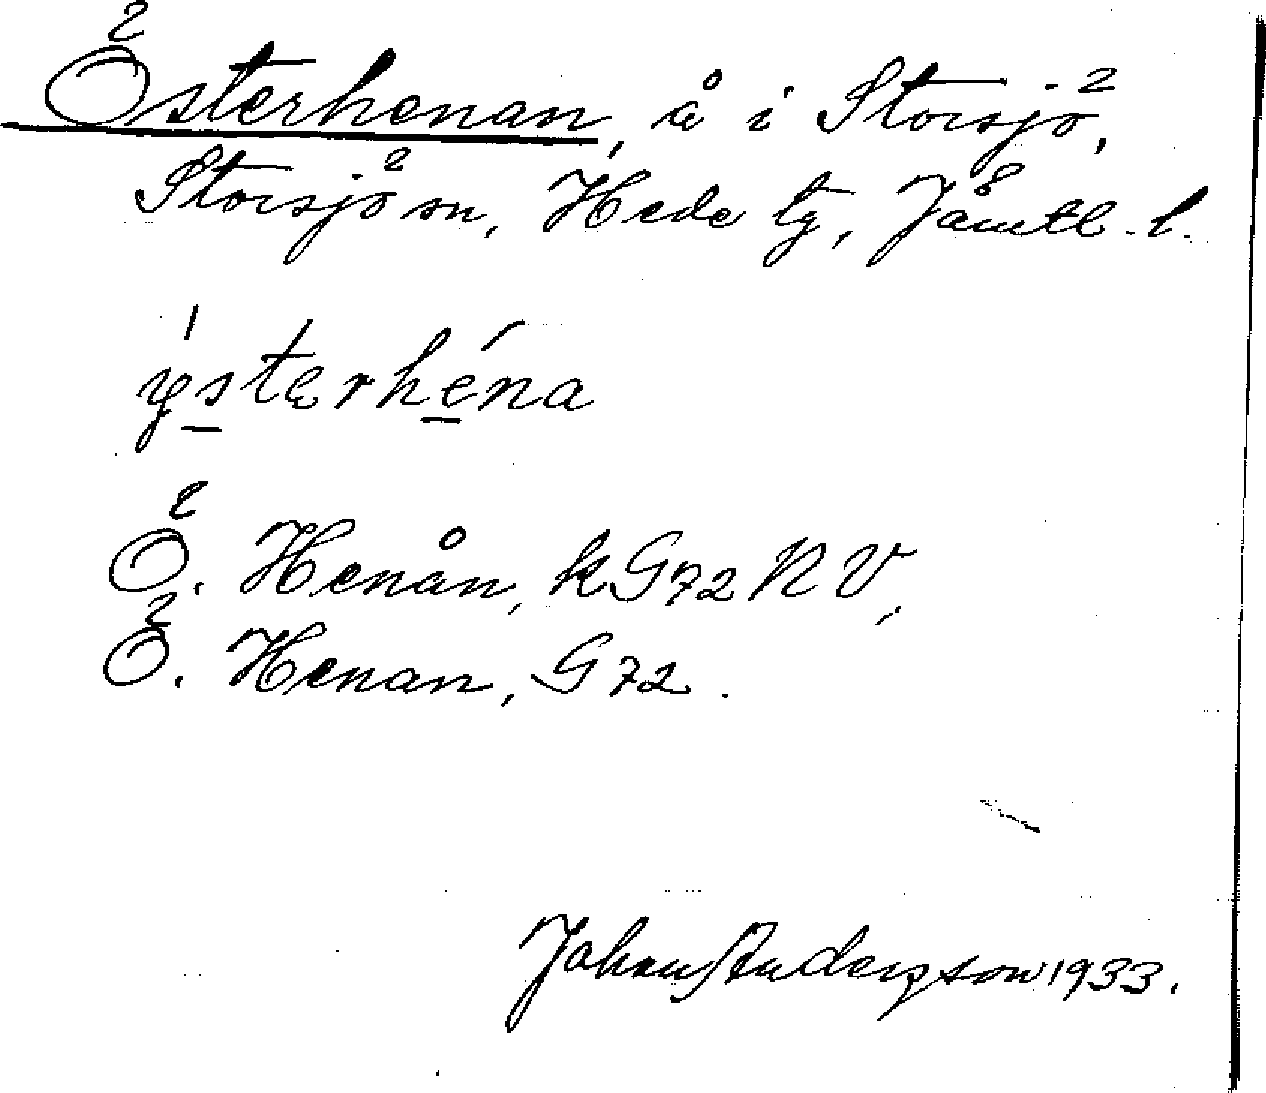 Österhenan, å i Storsjö,
Storsjö sn, Hede tg, Jämtl. l.
ýsterhéna
Ö. Henån, kG72 NV,
Ö. Henan, G72.
Johan Anderson 1933.